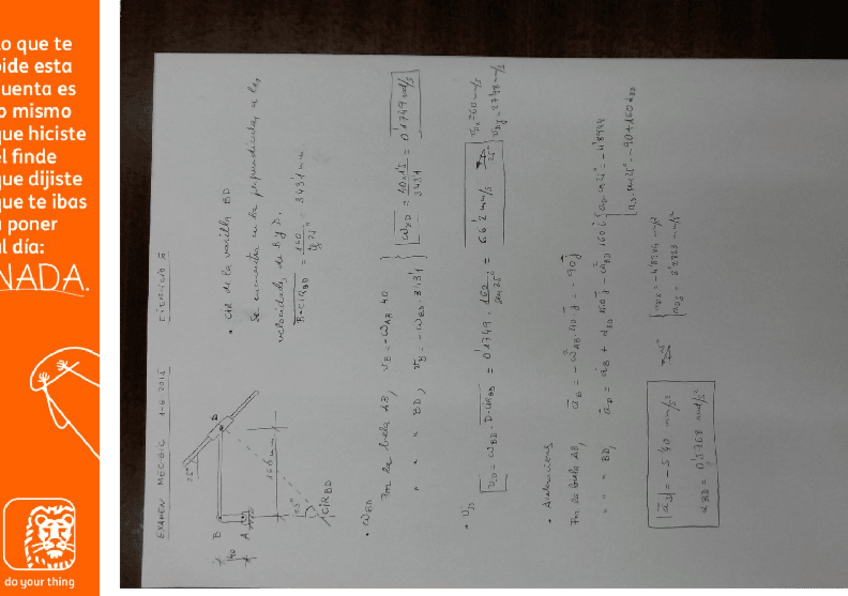 lo que te
pide esta
cuenta es
lo mismo
que hiciste
el finde
que dijiste
que te ibas
a poner
al día:
NADA.
do your thing
EXAMEN MEC-BIC 1-6-2015
B
A
D
40
25°
160 mm
CIR_BD
• CIR de la varilla BD
Se encuentra en la perpendicular a las
velocidades de B y D.
B-CIR_BD = 160 / tg 25° = 343'1 mm
• ω_BD
Por la biela AB, v_B = -ω_AB 40
" " " BD, v_B = -ω_BD · 343'1
ω_BD = 40×1'5 / 343'1 = 0'1749 rad/s
• v_D
v_D = ω_BD · D-CIR_BD = 0'1749 · 160 / sen 25° = 66'2 mm/s
25°
v_Dx = 60 mm/s
• Aceleraciones
Por la biela AB, a_B = -ω²_AB · 40 · j = -90 j
" " " BD, a_D = a_B + α_BD 160 j - ω²_BD 160 i
a_D cos 25° = -4'8944
a_D · sen 25° = -90 + 160 α_BD
|a_D| = -5'40 mm/s²
α_BD = 0'5768 rad/s²